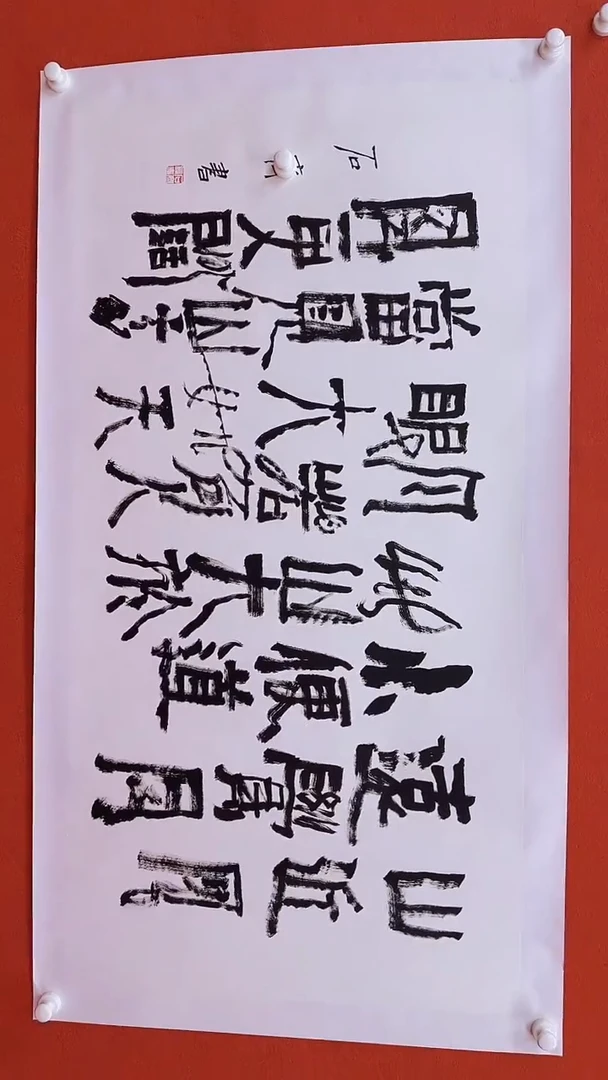 山近月
遠覺月
小便道
此山大於
月若有人
眼大如天
當見山高
更闊
石書